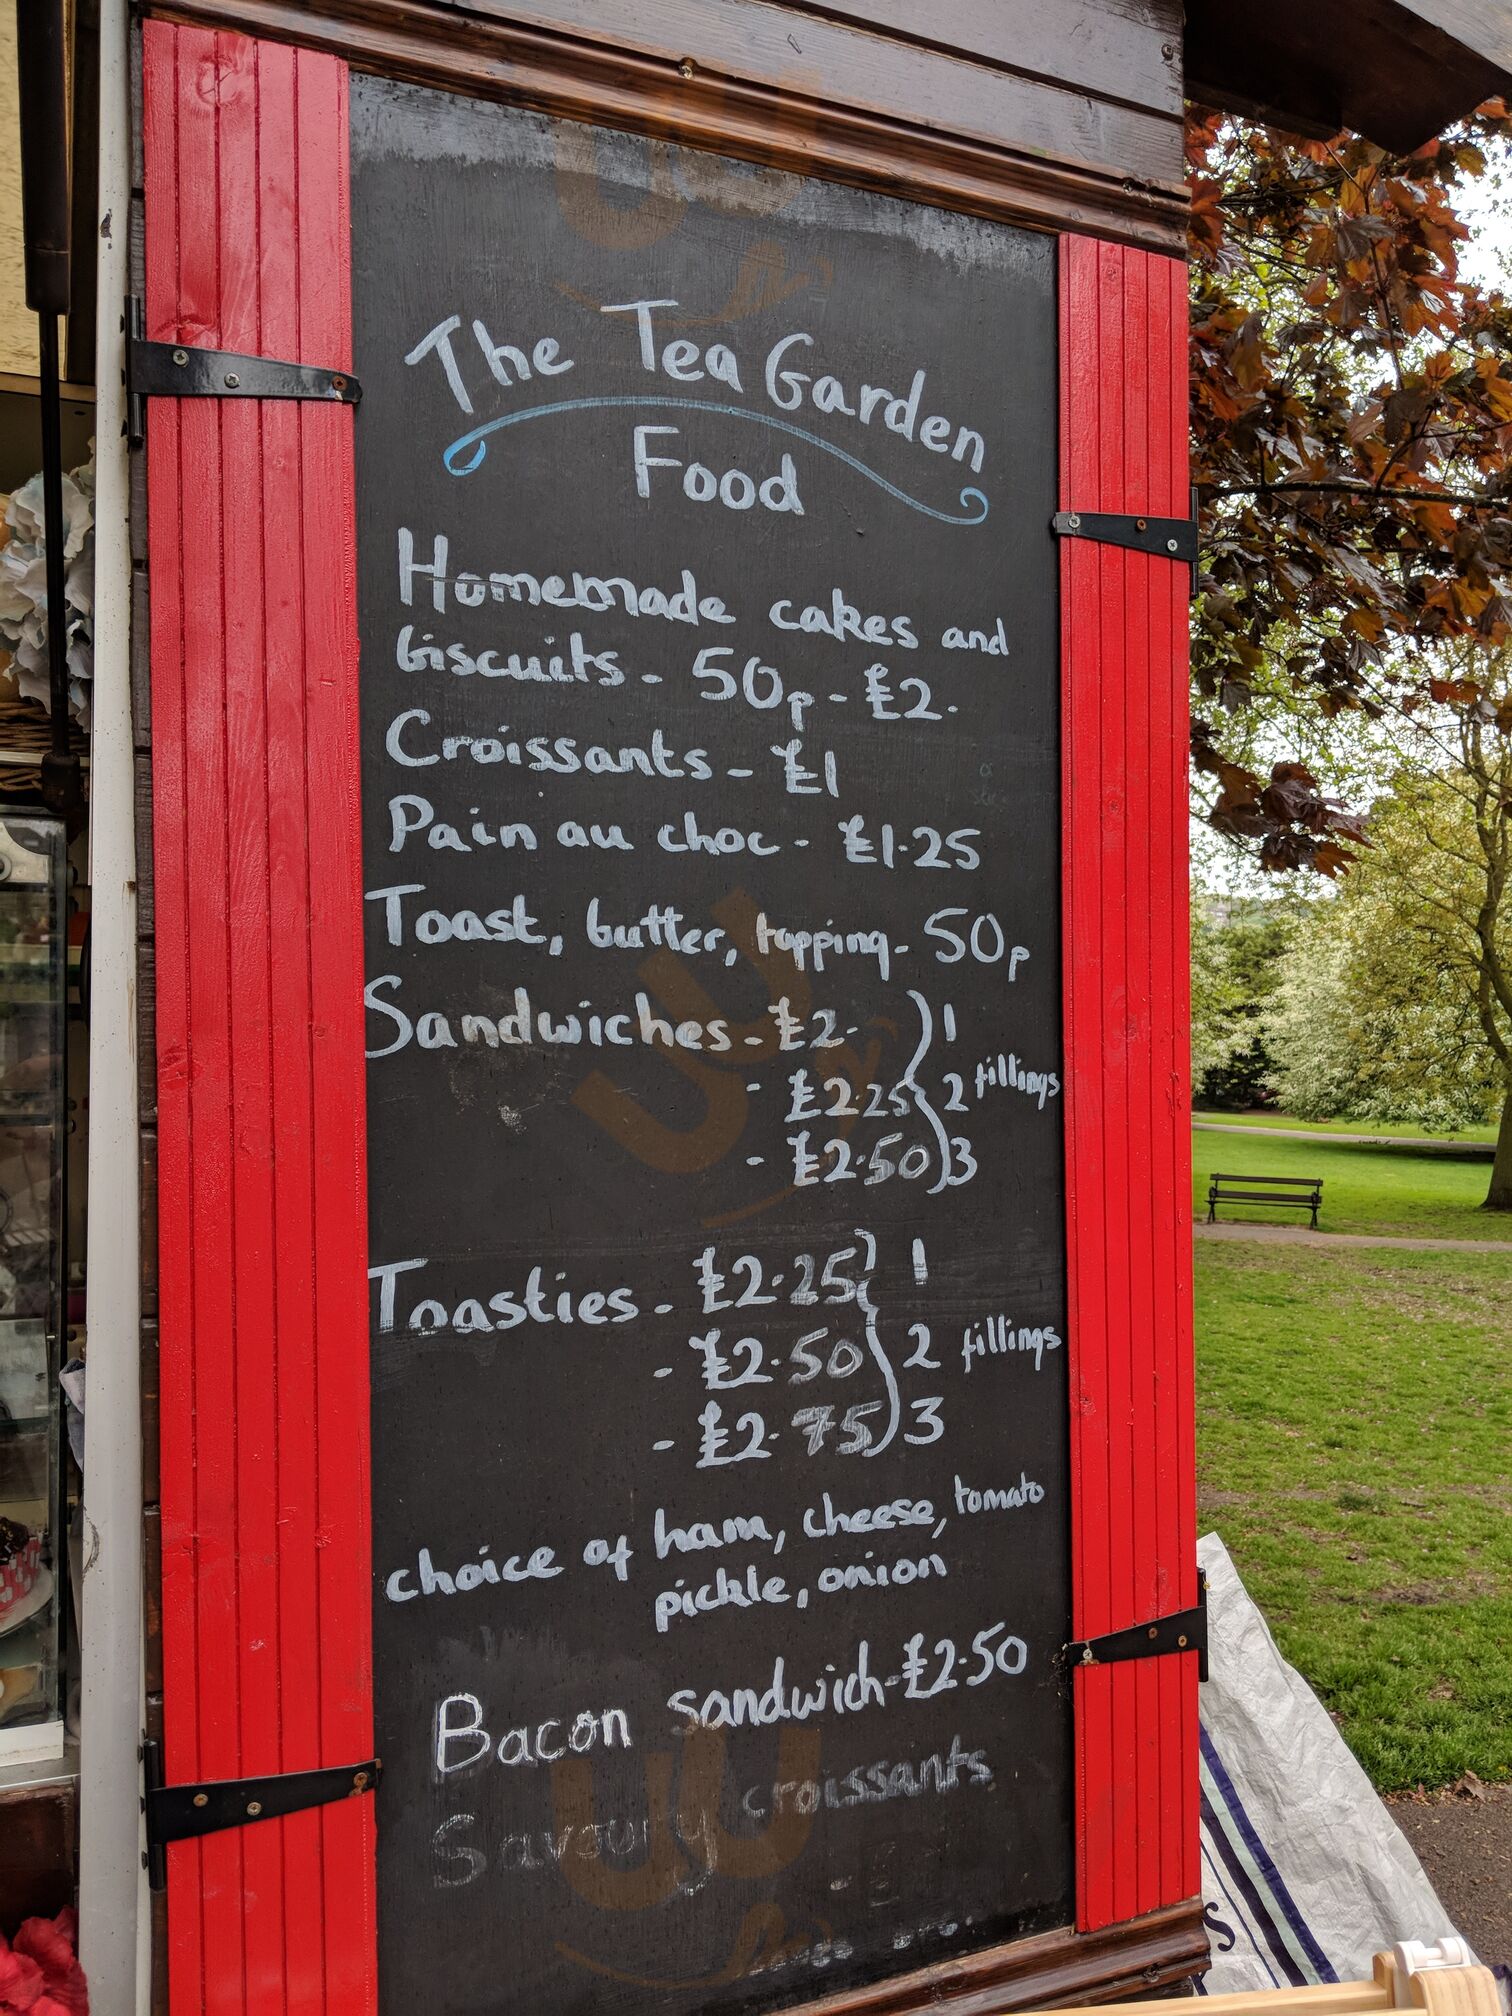 The Tea Garden
Food
Homemade cakes and
biscuits - 50p - £2.
Croissants - £1
Pain au choc - £1.25
Toast, butter, topping - 50p
Sandwiches - £2. } 1
- £2.25 } 2 fillings
- £2.50 } 3
Toasties - £2.25 } 1
- £2.50 } 2 fillings
- £2.75 } 3
choice of ham, cheese, tomato
pickle, onion
Bacon sandwich - £2.50
Savoury croissants